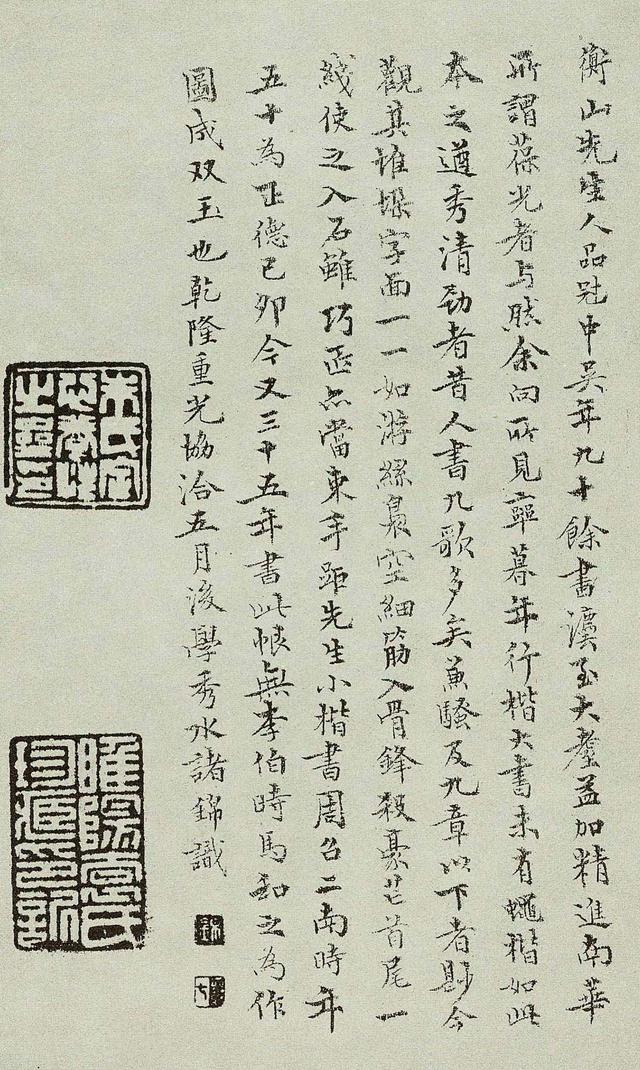 衡山先生人品冠中吳年九十餘書漢至大耋益加精進南華
所謂葆光者与賸余向所見率暮年行楷大書未有蠅楷如此
本之遒秀清勁者昔人書九歌多矣兼騷及九章以下者尠今
觀真誰垛字面一一如游絲裊空細筋入骨鋒殺豪芒首尾一
綫使之入石雖巧匠亦當束手距先生小楷書周召二南時年
五十為正德己卯今又三十五年書此帙無李伯時馬和之為作
圖成双玉也乾隆重光協洽五月後學秀水諸錦識
睢陽李氏